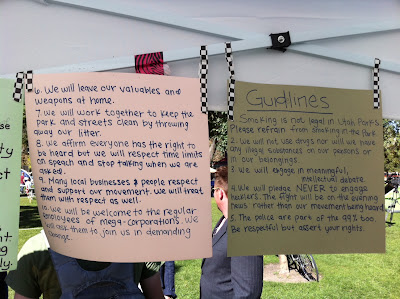 6. We will leave our valuables and
weapons at home.
7. We will work together to keep the
park and streets clean by throwing
away our litter.
8. We affirm everyone has the right to
be heard but we will respect time limits
on speach and stop talking when we are
asked.
9. Many local businesses & people respect
and support our movement. We will treat
them with respect as well.
10. We will be welcome to the regular
employees of mega-corporations. We
will ask them to join us in demanding
change.
Gudlines
Smoking is not legal in Utah Parks.
Please refrain from smoking in the Park.
2. We will not use drugs nor will we have
any illegal substances on our persons or
in our belongings.
3. We will engage in meaningful,
intellectual debate.
4. We will pledge NEVER to engage
hecklers. The fight will be on the evening
news rather than our movement being heard.
5. The police are part of the 99% too.
Be respectful but assert your rights.